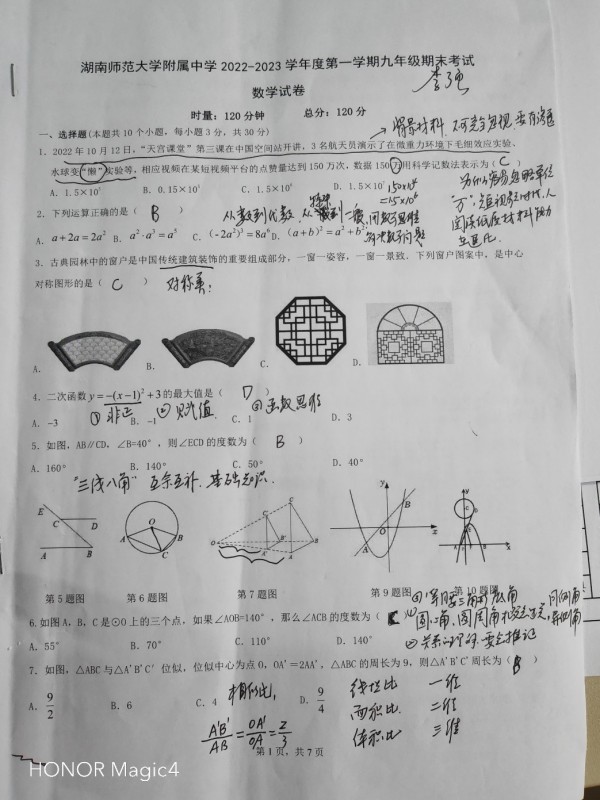 湖南师范大学附属中学 2022-2023 学年度第一学期九年级期末考试
数学试卷
时量：120 分钟 总分：120 分
一、选择题(本题共 10 个小题，每小题 3 分，共 30 分)
1. 2022 年 10 月 12 日，“天宫课堂”第三课在中国空间站开讲，3 名航天员演示了在微重力环境下毛细效应实验、
水球变“懒”实验等，相应视频在某短视频平台的点赞量达到 150 万次，数据 150 万用科学记数法表示为( C )
A. 1.5×10⁵ B. 0.15×10⁵ C. 1.5×10⁶ D. 1.5×10⁷
150×10⁴
=15×10⁵
2. 下列运算正确的是( B )
A. a+2a=2a² B. a²·a³=a⁵ C. (-2a²)³=8a⁶ D. (a+b)²=a²+b²
3. 古典园林中的窗户是中国传统建筑装饰的重要组成部分，一窗一姿容，一窗一景致．下列窗户图案中，是中心
对称图形的是( C ) 对称美!
A. B. C. D.
4. 二次函数 y=-(x-1)²+3 的最大值是( D )
① 非正 ② 最值 ③ 函数思想
A. -3 B. -1 C. 1 D. 3
5. 如图，AB∥CD，∠B=40°，则∠ECD 的度数为( B )
A. 160° B. 140° C. 50° D. 40°
“三线八角” 互余互补．基础知识．
E C D A B
O A B C
O A B C A' B' C'
y x O A B
y x
第 5 题图 第 6 题图 第 7 题图 第 9 题图 第 10 题图
6. 如图 A，B，C 是⊙O 上的三个点，如果∠AOB=140°，那么∠ACB 的度数为( C
A. 55° B. 70° C. 110° D. 140°
7. 如图，△ABC 与△A'B'C' 位似，位似中心为点 O，OA'=2AA'，△ABC 的周长为 9，则△A'B'C' 周长为( B )
A. 9/2 B. 6 C. 4 D. 9/4
相似比，
A'B'/AB = OA'/OA = 2/3
线段比 一维
面积比． 二维
体积比 三维
第 1 页，共 7 页
HONOR Magic4